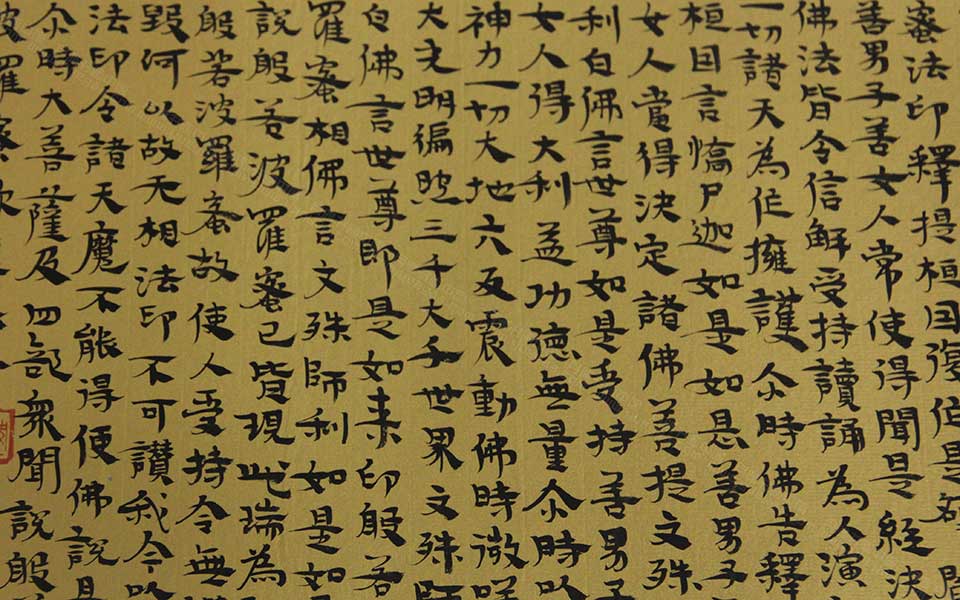 蜜法印釋提桓因復作是願閻
善男子善女人常使得聞是經決
佛法皆令信解受持讀誦為人演
一切諸天為作擁護尒時佛告釋
桓因言憍尸迦如是如是善男子
女人當得決定諸佛菩提文殊
利白佛言世尊如是受持善男子
女人得大利益功德無量尒時以
神力一切大地六反震動佛時微咲
大光明徧照三千大千世界文殊師
白佛言世尊即是如来印般若
羅蜜相佛言文殊師利如是如
說般若波羅蜜已皆現此瑞為
般若波羅蜜故使人受持令無
毀何以故无相法印不可讃我今以
法印令諸天魔不能得便佛說是
尒時大菩薩及四部衆聞說般
波羅蜜歡